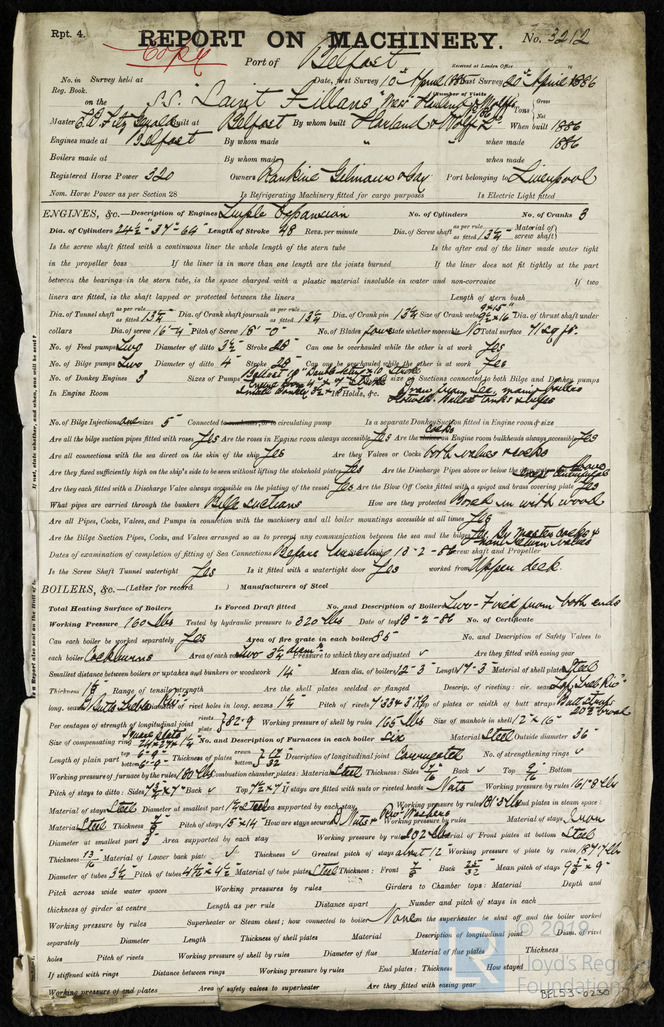 Rpt. 4.
REPORT ON MACHINERY. No. 3212
Copy
Port of Belfast
Received at London Office
No. in Survey held at Date, first Survey 10th April 1885 Last Survey 20th April 1886
Reg. Book. (Number of Visits
on the S.S. "Saint Fillans" Mess Harland & Wolffs Tons Gross Net
Master E.B. Fitz Gerald Built at Belfast By whom built Harland & Wolff Ld When built 1886
Engines made at Belfast By whom made " when made 1886
Boilers made at By whom made when made
Registered Horse Power 320 Owners Rankine Gilmour & Co Port belonging to Liverpool
Nom. Horse Power as per Section 28 Is Refrigerating Machinery fitted for cargo purposes Is Electric Light fitted
ENGINES, &c.—Description of Engines Triple Expansion No. of Cylinders No. of Cranks 3
Dia. of Cylinders 24½"-37"-64" Length of Stroke 48 Revs. per minute Dia. of Screw shaft as per rule as fitted 13½" Material of screw shaft
Is the screw shaft fitted with a continuous liner the whole length of the stern tube Is the after end of the liner made water tight
in the propeller boss If the liner is in more than one length are the joints burned If the liner does not fit tightly at the part
between the bearings in the stern tube, is the space charged with a plastic material insoluble in water and non-corrosive If two
liners are fitted, is the shaft lapped or protected between the liners Length of stern bush
Dia. of Tunnel shaft as per rule as fitted 13½" Dia. of Crank shaft journals as per rule as fitted 13½ Dia. of Crank pin 13½ Size of Crank webs Dia. of thrust shaft under
collars Dia. of screw 16'-4" Pitch of Screw 18'-0" No. of Blades Four State whether moveable No Total surface 71 sq ft.
No. of Feed pumps Two Diameter of ditto 3½ Stroke 28" Can one be overhauled while the other is at work Yes
No. of Bilge pumps Two Diameter of ditto 4" Stroke 28" Can one be overhauled while the other is at work Yes
No. of Donkey Engines 3 Sizes of Pumps No. and size of Suctions connected to both Bilge and Donkey pumps
In Engine Room In Holds, &c.
No. of Bilge Injections one sizes 5" Connected to circulating pump Is a separate Donkey Suction fitted in Engine room & size
Are all the bilge suction pipes fitted with roses Yes Are the roses in Engine room always accessible Yes Are the cocks on Engine room bulkheads always accessible Yes
Are all connections with the sea direct on the skin of the ship Yes Are they Valves or Cocks both valves & cocks
Are they fixed sufficiently high on the ship's side to be seen without lifting the stokehold plates Yes Are the Discharge Pipes above or below the deep water line above
Are they each fitted with a Discharge Valve always accessible on the plating of the vessel Yes Are the Blow Off Cocks fitted with a spigot and brass covering plate Yes
What pipes are carried through the bunkers Bilge suctions How are they protected Boxed in with wood
Are all Pipes, Cocks, Valves, and Pumps in connection with the machinery and all boiler mountings accessible at all times Yes
Are the Bilge Suction Pipes, Cocks, and Valves arranged so as to prevent any communication between the sea and the bilges Yes By master cocks & non return valves
Dates of examination of completion of fitting of Sea Connections Before launching 13-2-86 Screw shaft and Propeller
Is the Screw Shaft Tunnel watertight Yes Is it fitted with a watertight door Yes worked from Upper deck.
BOILERS, &c.—(Letter for record ) Manufacturers of Steel
Total Heating Surface of Boilers Is Forced Draft fitted No. and Description of Boilers Two - Fired from both ends
Working Pressure 160 lbs Tested by hydraulic pressure to 320 lbs Date of test 18-2-86 No. of Certificate
Can each boiler be worked separately Yes Area of fire grate in each boiler 85 No. and Description of Safety Valves to
each boiler Cockburns Area of each valve Two 3½ diamr Pressure to which they are adjusted ✓ Are they fitted with easing gear
Smallest distance between boilers or uptakes and bunkers or woodwork 14" Mean dia. of boilers 12'-3" Length 17'-3" Material of shell plates Steel
Thickness Range of tensile strength Are the shells plates welded or flanged Descrip. of riveting: cir. seams Lap Treb Riv
long. seams Diameter of rivet holes in long. seams Pitch of rivets Lap of plates or width of butt straps Butt Straps 20¾ broad
Per centages of strength of longitudinal joint rivets plate 82.9 Working pressure of shell by rules 165 lbs Size of manhole in shell 12" x 16"
Size of compensating ring No. and Description of Furnaces in each boiler Six Material Steel Outside diameter 36"
Length of plain part top bottom Thickness of plates crown bottom 17/32 Description of longitudinal joint Corrugated No. of strengthening rings ✓
Working pressure of furnace by the rules 180 lbs Combustion chamber plates: Material Steel Thickness: Sides 9/16 Back ✓ Top 9/16 Bottom
Pitch of stays to ditto: Sides Back ✓ Top If stays are fitted with nuts or riveted heads Nuts Working pressure by rules
Material of stays Steel Diameter at smallest part Area supported by each stay Working pressure by rules End plates in steam space:
Material Steel Thickness 7/8 Pitch of stays 15 x 14" How are stays secured D Nuts & Riv Washers Working pressure by rules Material of stays Iron
Diameter at smallest part 3" Area supported by each stay Working pressure by rules 202 lbs Material of Front plates at bottom Steel
Thickness 13/16 Material of Lower back plate ✓ Thickness ✓ Greatest pitch of stays about 12" Working pressure of plate by rules
Diameter of tubes 3½" Pitch of tubes 4½ x 4½" Material of tube plates Steel Thickness: Front 7/8 Back 25/32 Mean pitch of stays
Pitch across wide water spaces Working pressures by rules Girders to Chamber tops: Material Depth and
thickness of girder at centre Length as per rule Distance apart Number and pitch of stays in each
Working pressure by rules Superheater or Steam chest; how connected to boiler None Can the superheater be shut off and the boiler worked
separately Diameter Length Thickness of shell plates Material Description of longitudinal joint Diam. of rivet
holes Pitch of rivets Working pressure of shell by rules Diameter of flue Material of flue plates Thickness
If stiffened with rings Distance between rings Working pressure by rules End plates: Thickness How stayed
Working pressure of end plates Area of safety valves to superheater Are they fitted with easing gear
© 2019
Lloyd's Register
Foundation
BEL53-0230